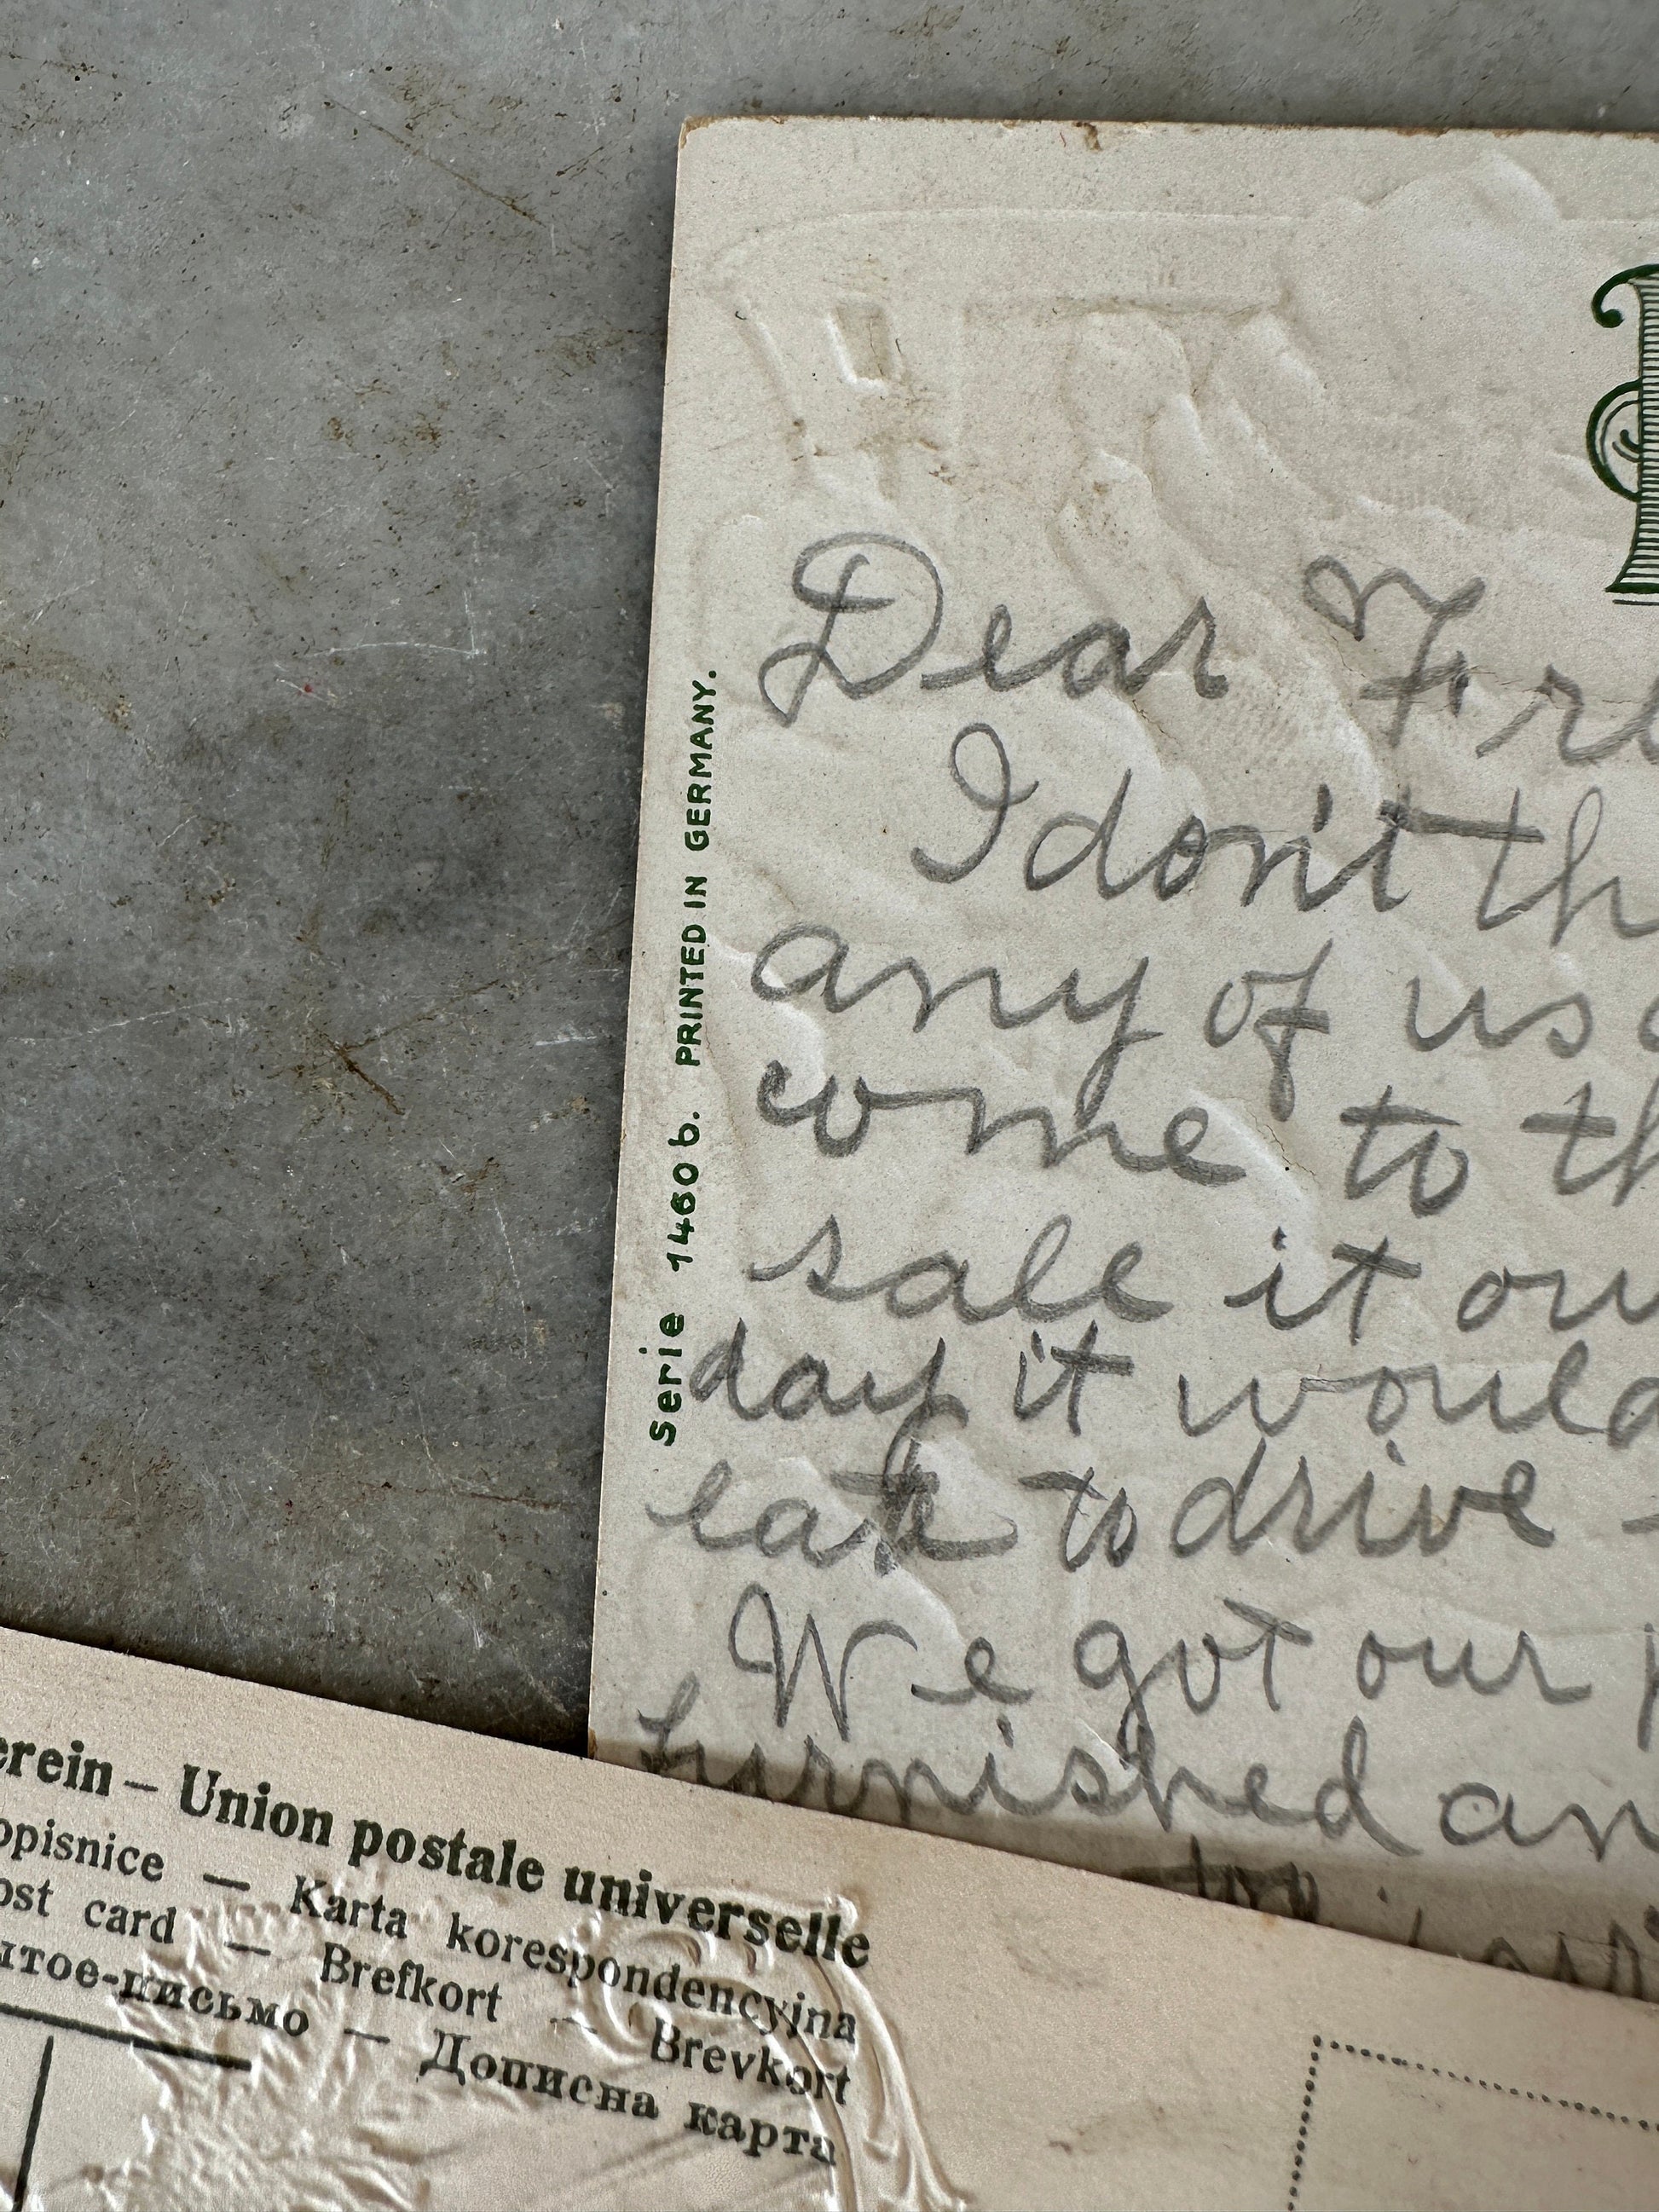 Serie 1460 b. PRINTED IN GERMANY.
Dear Fre
I don't th
any of us
come to th
sale it ou
day it would
to drive
We got our
furnished an
too
erein – Union postale universelle
opisnice – Karta korespondencyjna
ost card – Brefkort – Brevkort
ытое-письмо – Дописна карта